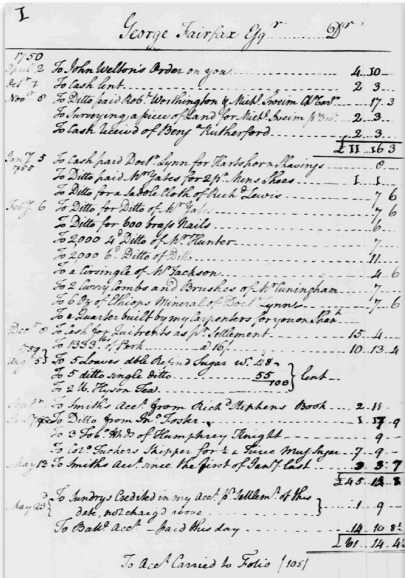 I
George Fairfax Esqr Dr
1750
April 2 To John Welton's Order on you 4 10
Octr 7 To Cash lent 2 3
Novr 8 To Ditto paid Robt Worthington & Michl Sweim 17 3
To Surveying a piece of Land for Michl Sweim 2 3
To Cash receivd of Benj Rutherford 2 3
£11 16 3
Jany 5 To Cash paid Doctr Lynn for Hartshorn Shavings 8
1755 To Ditto paid Mr Yates for 2 pr Mens Shoes 1 1
To Ditto for a Saddle Cloth of Richd Lewis 7 6
6 To Ditto for Ditto of Mr Yates 7 6
To Ditto for 600 brass Nails 6
To 2000 4d Ditto of Mr Hunter 7
To 2000 6d Ditto of Ditto 11
To a Corsingle of Mr Jackson 4 6
To 2 Curry Combs and Brushes of Mr Cuningham 7
To 6 Oz of Ethiops Mineral of Doctr Lynns 7 6
To a Quarter built by my Carpenters for you on
8 To Cash for Quitrents as pr Settlement 15 4
1759 To 1333 lbs Pork a 16/ 10 13 4
Augt 5 To 5 Loaves dble Refind Sugar wt 48
To 5 ditto single ditto 55
100 } lent
To 2 lb Hyson Tea
To Smiths Acct from Richd Stephens Book 2 11
To Ditto from Jno Foster 1 17 9
To 3 Tobo Hhds of Humphrey Knight 9
To Tuckers Skipper for a Tierce Musco Sugar 7 9
May 13 To Smiths Acct since the first of Jany last 2 3 7
£45 14 8
May 23 To Sundrys Credited in my Acct pr Settlemt of this
date, not chargd above 1 9
To Ballce Acct paid this day 14 10 8½
£61 14 4½
To Acct Carried to Folio [105]